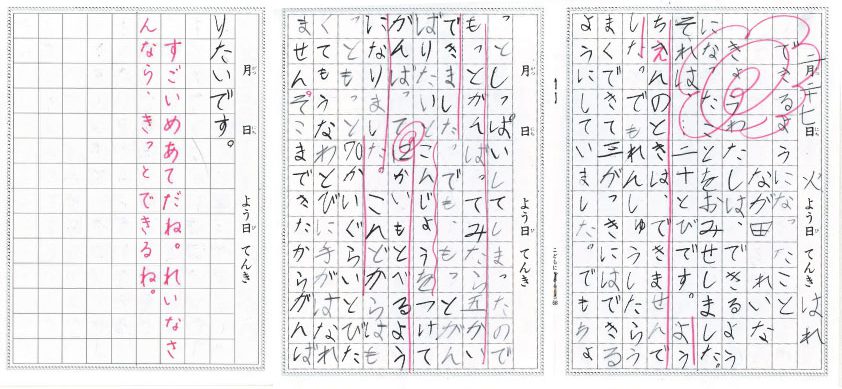 二月二十七日 火よう日 てんき はれ
できるようになったこと
なが田 れいな
きょうわたしは、できるよう
になったことをおみせしました。
それは、二十とびです。よう
ちえんのときは、できませんで
した。でもれんしゅうしたらう
まくできて三がっきにはできる
ようになっていました。でもちょ
月 日 よう日 てんき
っとしっぱいしてしまったので
もっとがんばってみたら五かい
できました。でも、もっとがん
ばりたいしこんじょうをつけて
がんばって かいもとべるよう
になりました。こんどからはも
っともっと70かいぐらいとびた
くてもうなわとびに手がはなれ
ませんぞこまできたからがんば
月 日 よう日 てんき
りたいです。
すごいめあてだね。れいなさ
んなら、きっとできるね。